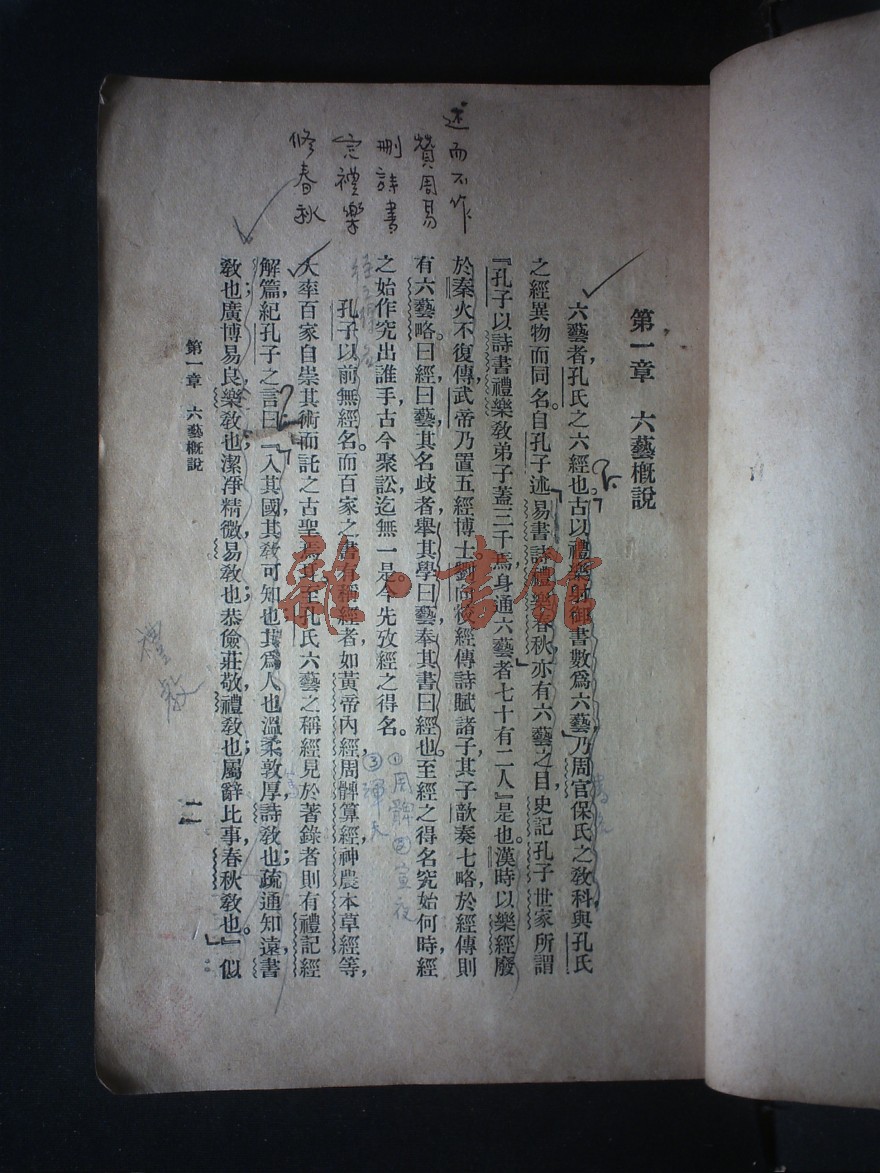 述而不作
贊周易
刪詩書
定禮樂
修春秋
第一章　六藝概說
六藝者，孔氏之六經也。古以禮樂射御書數爲六藝，乃周官保氏之教科，與孔氏
之經異物而同名。自孔子述易書詩禮樂春秋，亦有六藝之目，史記孔子世家所謂
『孔子以詩書禮樂教弟子蓋三千焉，身通六藝者七十有二人』是也。漢時以樂經廢
於秦火，不復傳，武帝乃置五經博士，劉向校經傳詩賦諸子，其子歆奏七略，於經傳則
有六藝略。曰經，曰藝，其名歧者，舉其學曰藝，奉其書曰經也。至經之得名，究始何時，經
之始作，究出誰手，古今聚訟，迄無一是。今先攷經之得名。
孔子以前無經名。而百家之書有稱經者，如黃帝內經，周髀算經，神農本草經等，
大率百家自崇其術，而託之古聖焉。其在孔氏六藝之稱經，見於著錄者，則有禮記經
解篇紀孔子之言曰：『入其國，其教可知也。其爲人也，溫柔敦厚，詩教也；疏通知遠，書
教也；廣博易良，樂教也；潔淨精微，易教也；恭儉莊敬，禮教也；屬辭比事，春秋教也。』似
①周髀 ②宣夜
③渾天
禮教
第一章　六藝概說
一
龍·書館